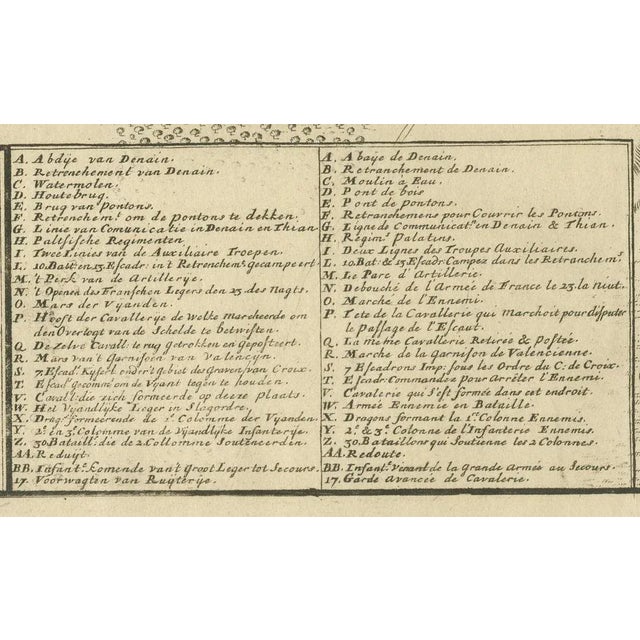 A. Abdÿe van Denain.
B. Retrenchement van Denain.
C. Watermolen.
D. Houtebrug.
E. Brug van pontons.
F. Retrenchemt. om de pontons te dekken.
G. Linie van Comunicatie in Denain en Thian.
H. Palesische Regimenten.
I. Twee Linies van de Auxiliaire Troepen.
L. 10. Batt: en 13. Escadr: in 't Retrenchemt. gecampeert.
M. 't Perk van de Artillerye.
N. 't Openen des Franschen Legers den 23. des Nagts.
O. Mars der Vyanden.
P. Hooft der Cavallerye de Welke marcheerde om
den Overtogt van de Schelde te betwisten.
Q. De Zelve Cavall: te rug getrokken en geposteert.
R. Mars van 't Garnisoen van Valencÿn.
S. 7. Escad: Kyserl. onder 't gebiet des Graven van Croix.
T. Escad: gecomm: om de Vyant tegen te houden.
V. Cavall: die zich formeerde op deeze plaats.
W. Het Vyandlyke Leger in Slagordre.
X. Dragr. formeerende de 1e. Colomme der Vyanden.
Y. 2e. en 3e. Colomme van de Vyandlyke Infanterye.
Z. 30. Bataill: die de 2. Collomme Souteneerden.
AA. Reduÿt.
BB. Infantr. komende van 't Groot Leger tot Secours.
17. Voorwagten van Ruÿterÿe.
A. Abaye de Denain.
B. Retranchement de Denain.
C. Moulin à Eau.
D. Pont de bois
E. Pont de pontons.
F. Retranchemens pour Couvrir les Pontons.
G. Ligne de Communicatn. en Denain & Thian.
H. Régimts. Palatins.
I. Deux Lignes des Troupes Auxiliaires.
L. 10. Bat: & 13 Escad: Campez dans les Retranchemts.
M. Le Parc d'Artillerie.
N. Debouché de l'Armée de France le 23. la Nuit.
O. Marche de l'Ennemi.
P. Tete de la Cavallerie qui Marchoit pour disputer
le Passage de l'Escaut.
Q. La même Cavallerie Retirée & Postée.
R. Marche de la Garnison de Valencienne.
S. 7 Escadrons Imp: sous les Ordre du C: de Croix.
T. Escad: Commandez pour Arrêter l'Ennemi.
V. Cavalerie qui S'est formée dans cet endroit.
W. Armée Ennemie en Bataille.
X. Dragons formant la 1e. Colonne Ennemis.
Y. 2e. & 3e. Colonne de l'Infanterie Ennemis.
Z. 30. Bataillons qui Soutienne les 2 Colonnes.
AA. Redoute.
BB. Infantr. Venant de la Grande Armée au Secours.
17. Garde Avancée de Cavalerie.